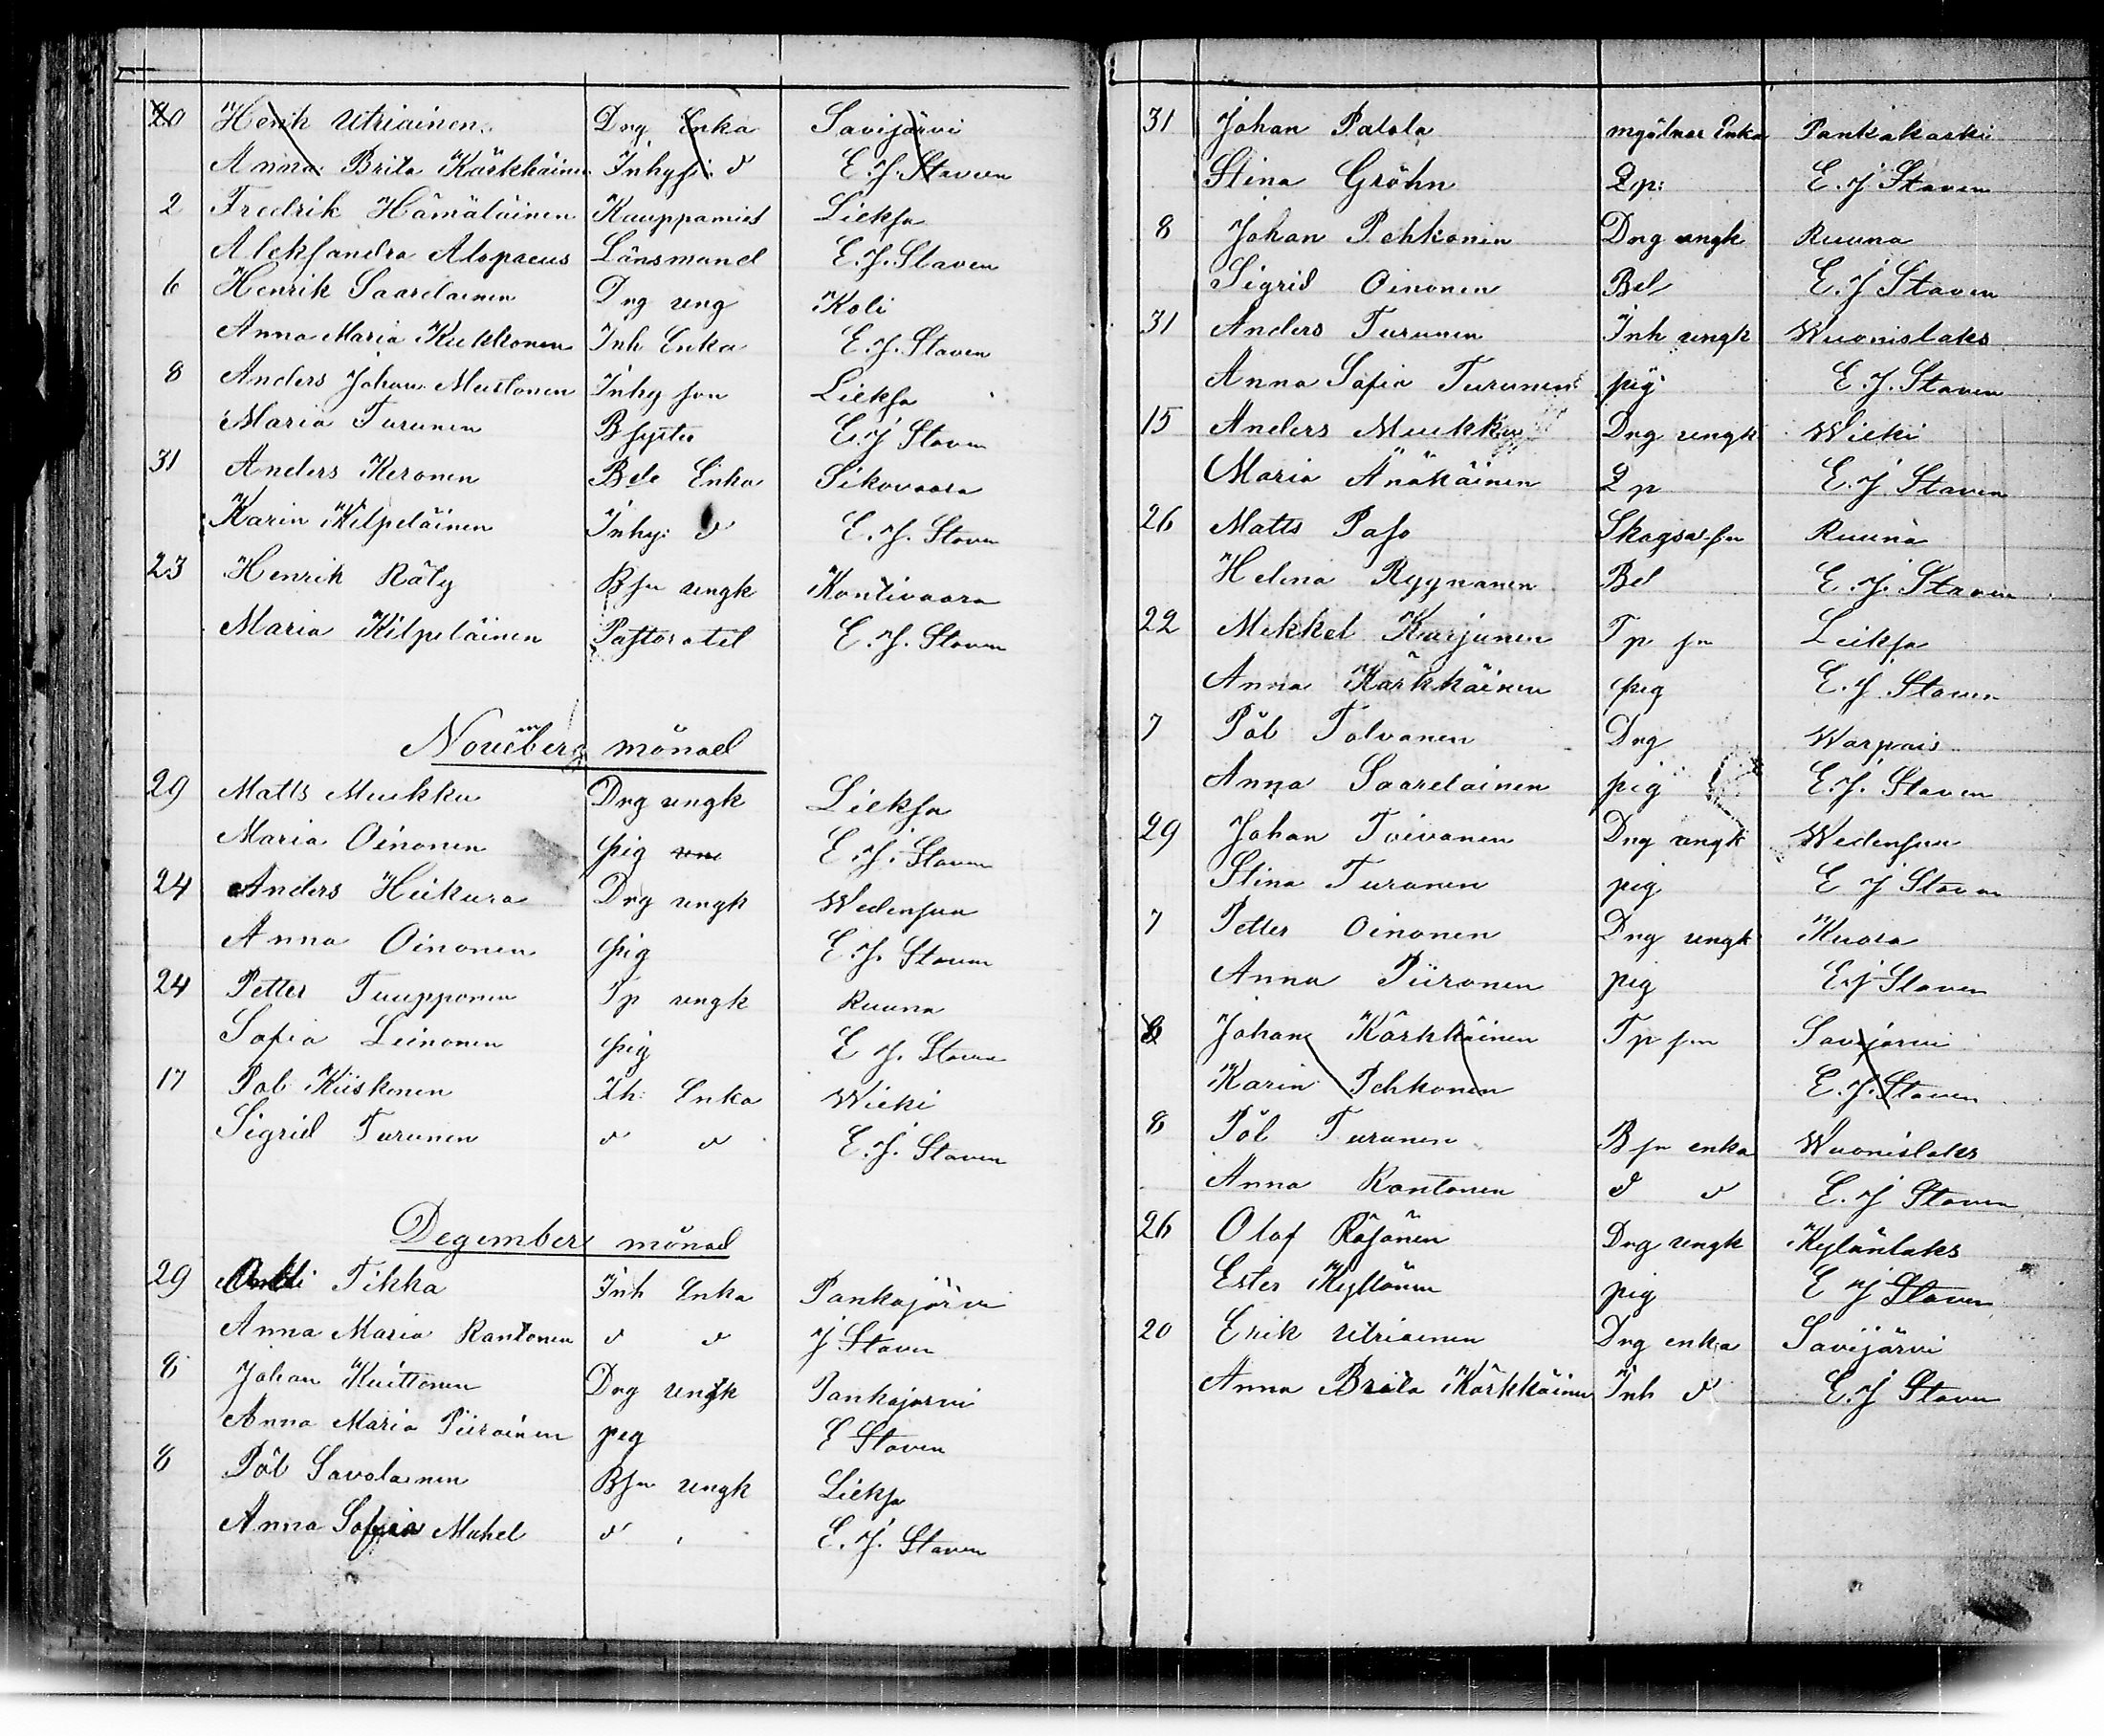 20 Henk Utriainen Dng Enka Savijärvi
Anna Brita Kärkkäinen Inhys: d E. J. Staven
2 Fredrik Hämäläinen Kauppamies Lieksa
Aleksandra Alopaeus Länsmand E. J. Staven
6 Henrik Saarelainen Dng ung Koli
Anna Maria Kukkonen Inh Enka E. J. Staven
8 Anders Johan Mustonen Inhy son Lieksa
Maria Turunen B syster E. J Staven
31 Anders Keronen Bde Enka Sikovaara
Karin Kilpeläinen Inhy: d E. J. Staven
23 Henrik Räty Bsn ungk Kontivaara
Maria Kilpeläinen Pastoratet E. J. Staven
November månad
29 Matts Mukku Dng ungk Lieksa
Maria Oinonen pig E. J. Staven
24 Anders Heikura Dng ungk Wedensuu
Anna Oinonen pig E. J. Staven
24 Petter Tuupponen Tp ungk Ruuna
Sofia Leinonen pig E J. Staven
17 Pål Kiiskonen Ih: Enka Wieki
Sigrid Turunen d d E. J. Staven
Degember månad
29 Antti Tikka Inh Enka Pankajärvi
Anna Maria Rantonen d d J Staven
8 Johan Kuittonen Dng ungk Pankajärvi
Anna Maria Piirainen pig E Staven
8 Pål Savolainen Bsn ungk Lieksa
Anna Sofia Mahel d E. J. Staven
31 Johan Palola mjölnar Enka Pankakoski
Stina Gröhn Qp: E. J Staven
8 Johan Pehkonen Dng ungk Ruuna
Sigrid Oinonen Bd E. J Staven
31 Anders Turunen Inh ungk Wuonislaks
Anna Sofia Turunen pig E. J. Staven
15 Anders Mukku Dng ungk Wieki
Maria Änäkäinen Qp E. J. Staven
26 Matts Paso Ruuna
Helena Ryynänen Bd E. J. Staven
22 Mikkel Karjunen Tp sn Lieksa
Anna Kärkkäinen pig E. J. Staven
7 Pål Tolvanen Dng Warpais
Anna Saarelainen pig E. J. Staven
29 Johan Toivanen Dng ungk Wedensuu
Stina Turunen pig E J Staven
7 Petter Oinonen Dng ungk Kuora
Anna Piironen pig E. J Staven
8 Johan Kärkkäinen Tp sn Savijärvi
Karin Pehkonen E. J. Staven
8 Pål Turunen B sn enka Wuonislaks
Anna Rantonen d d E. J Staven
26 Olof Räsänen Dng ungk Kylänlaks
Ester Kyllönen pig E J Staven
20 Erik Utriainen Dng enka Savijärvi
Anna Brita Kärkkäinen Inh d E. J Staven